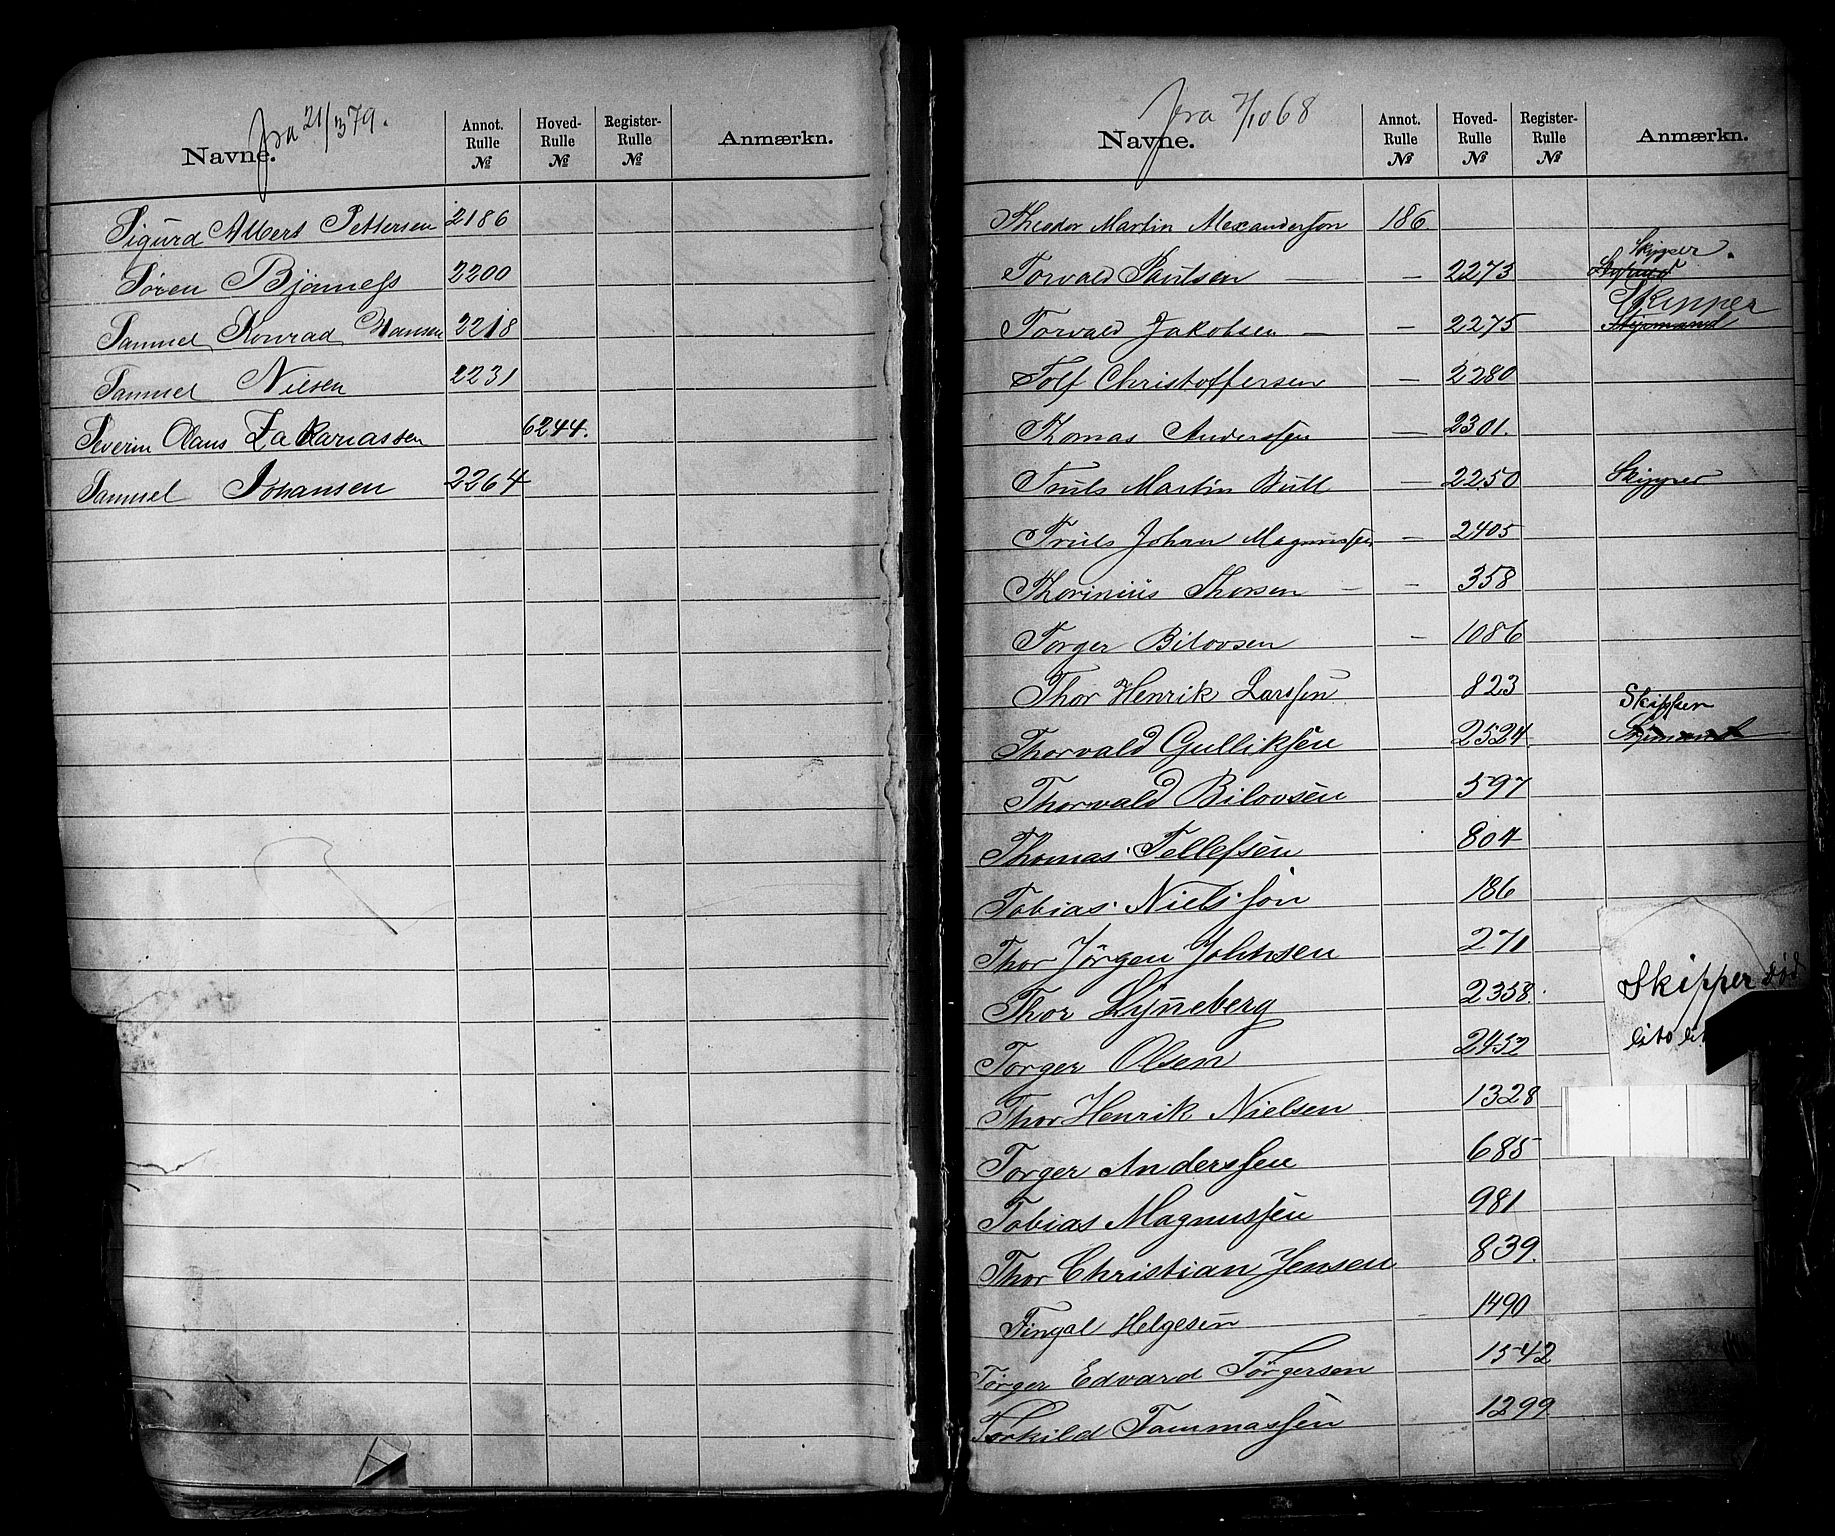 fra 21/3 79.
Navne. Annot. Rulle № Hoved-Rulle № Register-Rulle № Anmærkn.
Sigurd Albert Pettersen 2186
Søren Bjønness 2200
Samuel Konrad Hansen 2218
Samuel Nilsen 2231
Severin Olaus Zakariassen 6244.
Samuel Johansen 2264
fra 7/10 68
Navne. Annot. Rulle № Hoved-Rulle № Register-Rulle № Anmærkn.
Theodor Martin Alexandersson 186
Skipper.
Torvald Paulsen — — 2273
Skipper
Torvald Jakobsen — — 2275 Styrmand
Tolf Christoffersen — 2280
Thomas Anderssen — 2301.
Truls Martin Bull — 2250 Skipper
Truls Johan Magnussen — 2405
Thorinius Thorsen — — 358
Torger Bilovsen — 1086
Thor Henrik Larssen 823
Skipper
Thorvald Gulliksen 2524 Styrmand
Thorvald Bilovsen 597
Thomas Tellefsen 804
Tobias Nielsson 186
Thor Jörgen Johnsen 271
Thor Lyneberg 2358. Skipper død
Torger Olsen 2432
Thor Henrik Nielsen 1328
Torger Anderssen 685
Tobias Magnussen 981
Thor Christian Jensen 839.
Fingal Helgesen - 1490
Törger Edvard Törgersen 1542
Torkild Tommassen 1299